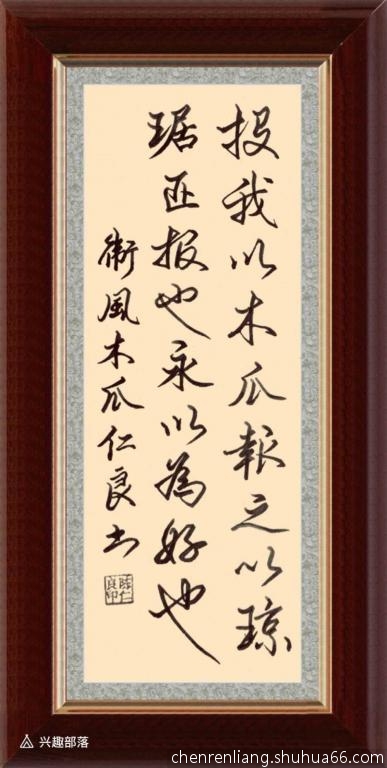 投我以木瓜報之以琼
琚匪报也永以為好也
衛風木瓜仁良书
陳仁良印
兴趣部落
chenrenliang.shuhua66.com